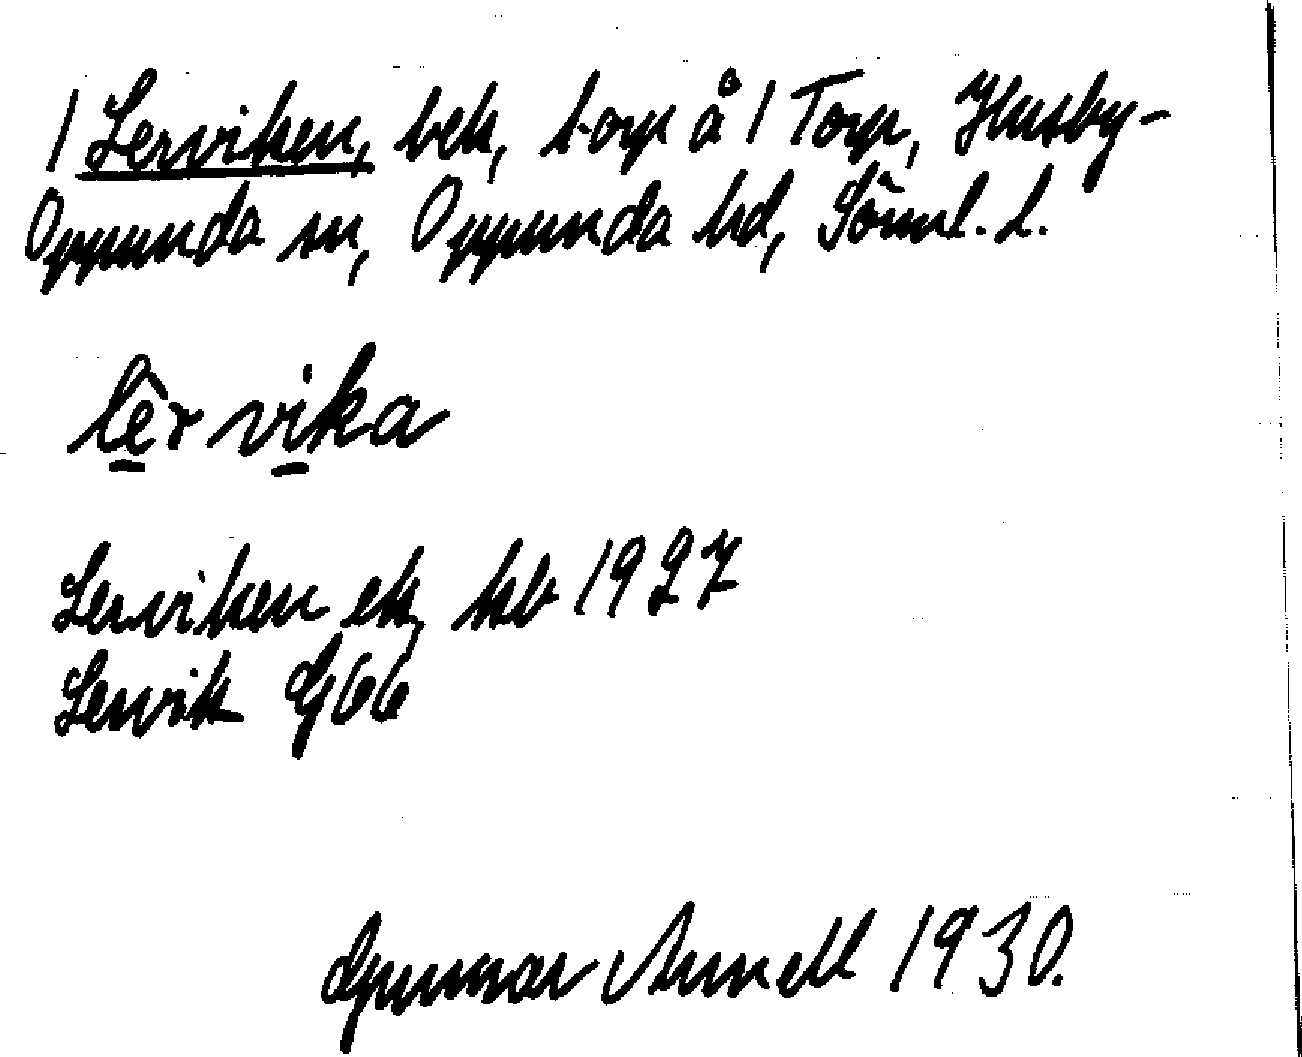 1 Lerviken, bek, torp å 1 Torp, Husby-
Oppunda sn, Oppunda hd, Söml. l.
lêrvika
Lerviken ek, kb 1927
Lervik G66
Gunnar Arnell 1930.